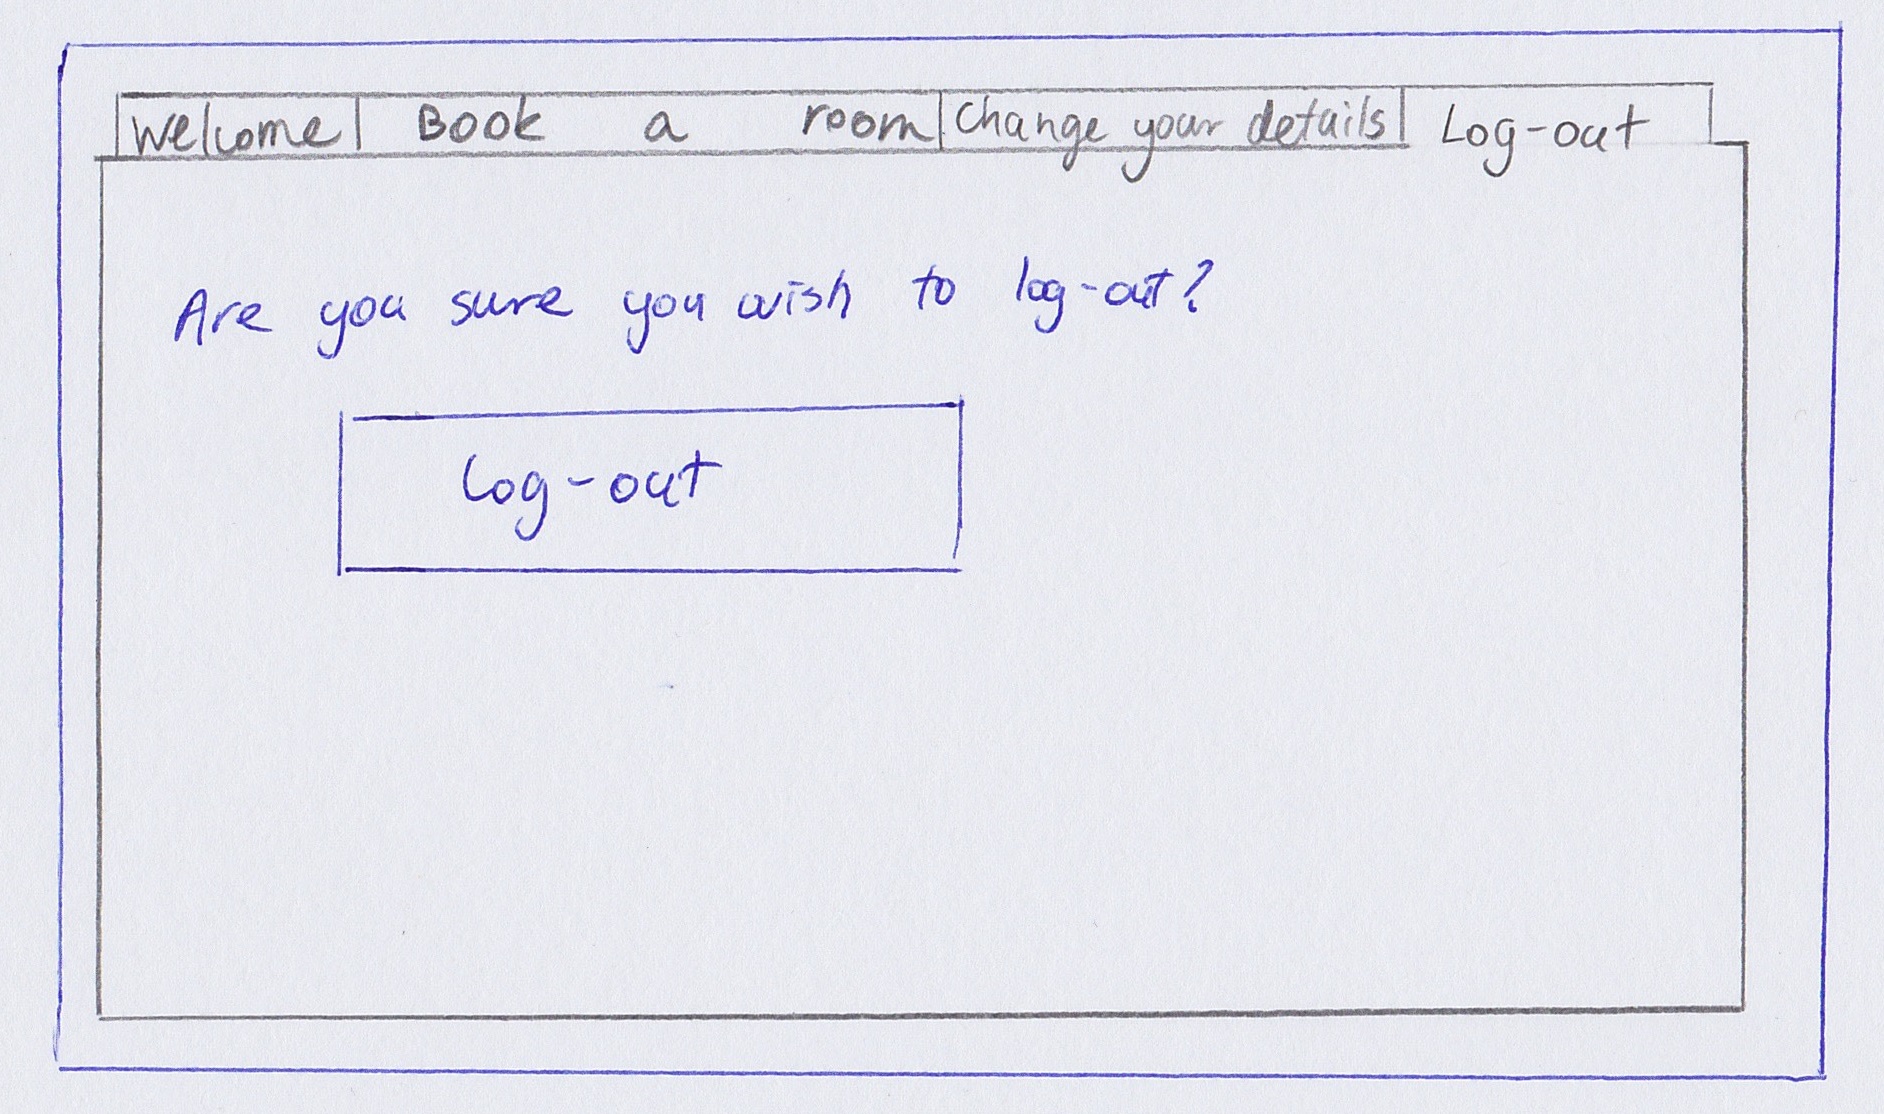 Welcome Book a room Change your details Log-out
Are you sure you wish to log-out?
Log-out